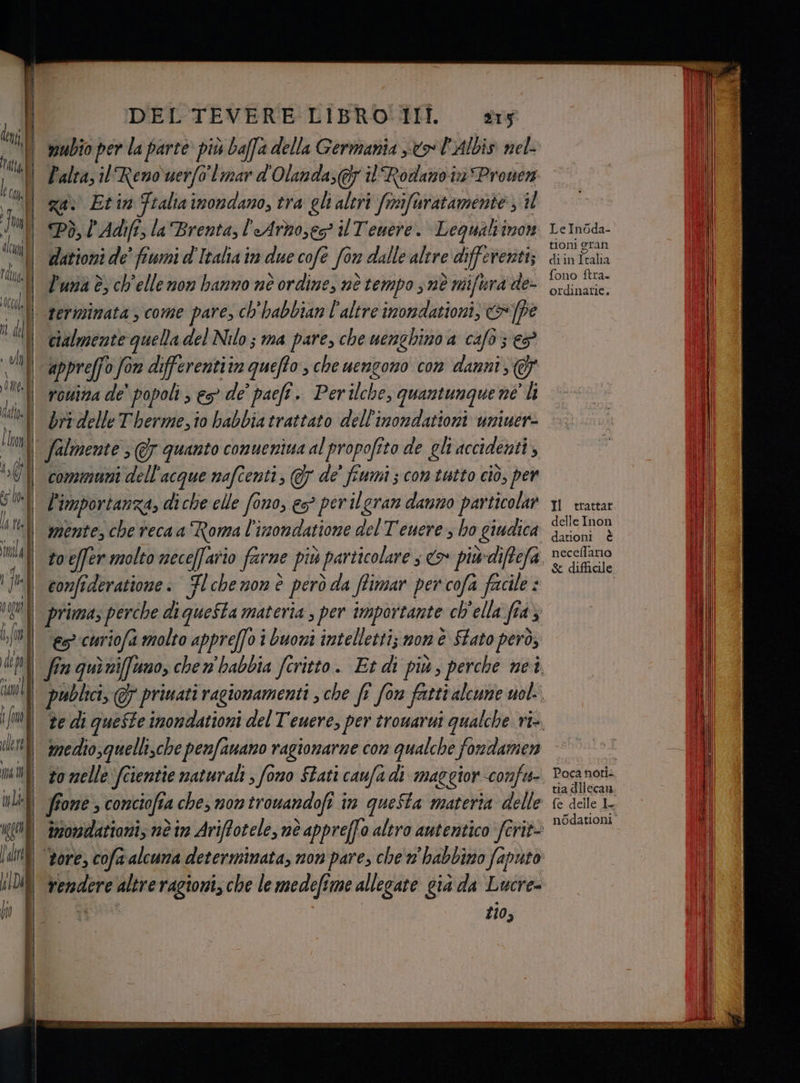 DEL TEVERE LIBRO III. 215
nubio per la parte più bassa della Germania, & l'Albis nel-
l'alta, il Reno uerso'l mar d'Olanda, & il Rodano in Prouen
za. Et in Italia inondano, tra gli altri smisuratamente, il
Pò, l'Adise, la Brenta, l'Arno, & il Teuere. Lequali inon
dationi de' fiumi d'Italia in due cose son dalle altre differenti;
l'una è, ch'elle non hanno nè ordine, nè tempo, nè misura de-
terminata, come pare, ch'habbian l'altre inondationi, & spe
cialmente quella del Nilo; ma pare, che uenghino a caso; &
appresso son differenti in questo, che uengono con danni, &
rouina de' popoli, & de' paesi. Per ilche, quantunque ne' li
bri delle Therme, io habbia trattato dell'inondationi uniuer-
salmente, & quanto conueniua al proposito de gli accidenti,
communi dell'acque nascenti, & de' fiumi; con tutto ciò, per
l'importanza, di che elle sono, & per il gran danno particolar
mente, che reca a Roma l'inondatione del Teuere, ho giudica
to esser molto necessario farne più particolare, & più distesa
consideratione. Il che non è però da stimar per cosa facile:
prima, perche di questa materia, per importante ch'ella sia,
& curiosa molto appresso i buoni intelletti; non è stato però,
fin quì nissuno, che n'habbia scritto. Et di più, perche nei
publici, & priuati ragionamenti, che si son fatti alcune uol-
te di queste inondationi del Teuere, per trouarui qualche ri-
medio, quelli, che pensauano ragionarne con qualche fondamen
to nelle scientie naturali, sono stati causa di maggior confu-
sione, conciosia che, non trouandosi in questa materia delle
inondationi, nè in Aristotele, nè appresso altro autentico scrit-
tore, cosa alcuna determinata, non pare, che n'habbino saputo
rendere altre ragioni, che le medesime allegate già da Lucre-
tio,
Le Inōda-
tioni gran
di in Italia
sono stra-
ordinarie.
Il trattar
delle Inon
dationi è
necessario
& difficile
Poca noti-
tia d'llecau
se delle I-
nōdationi